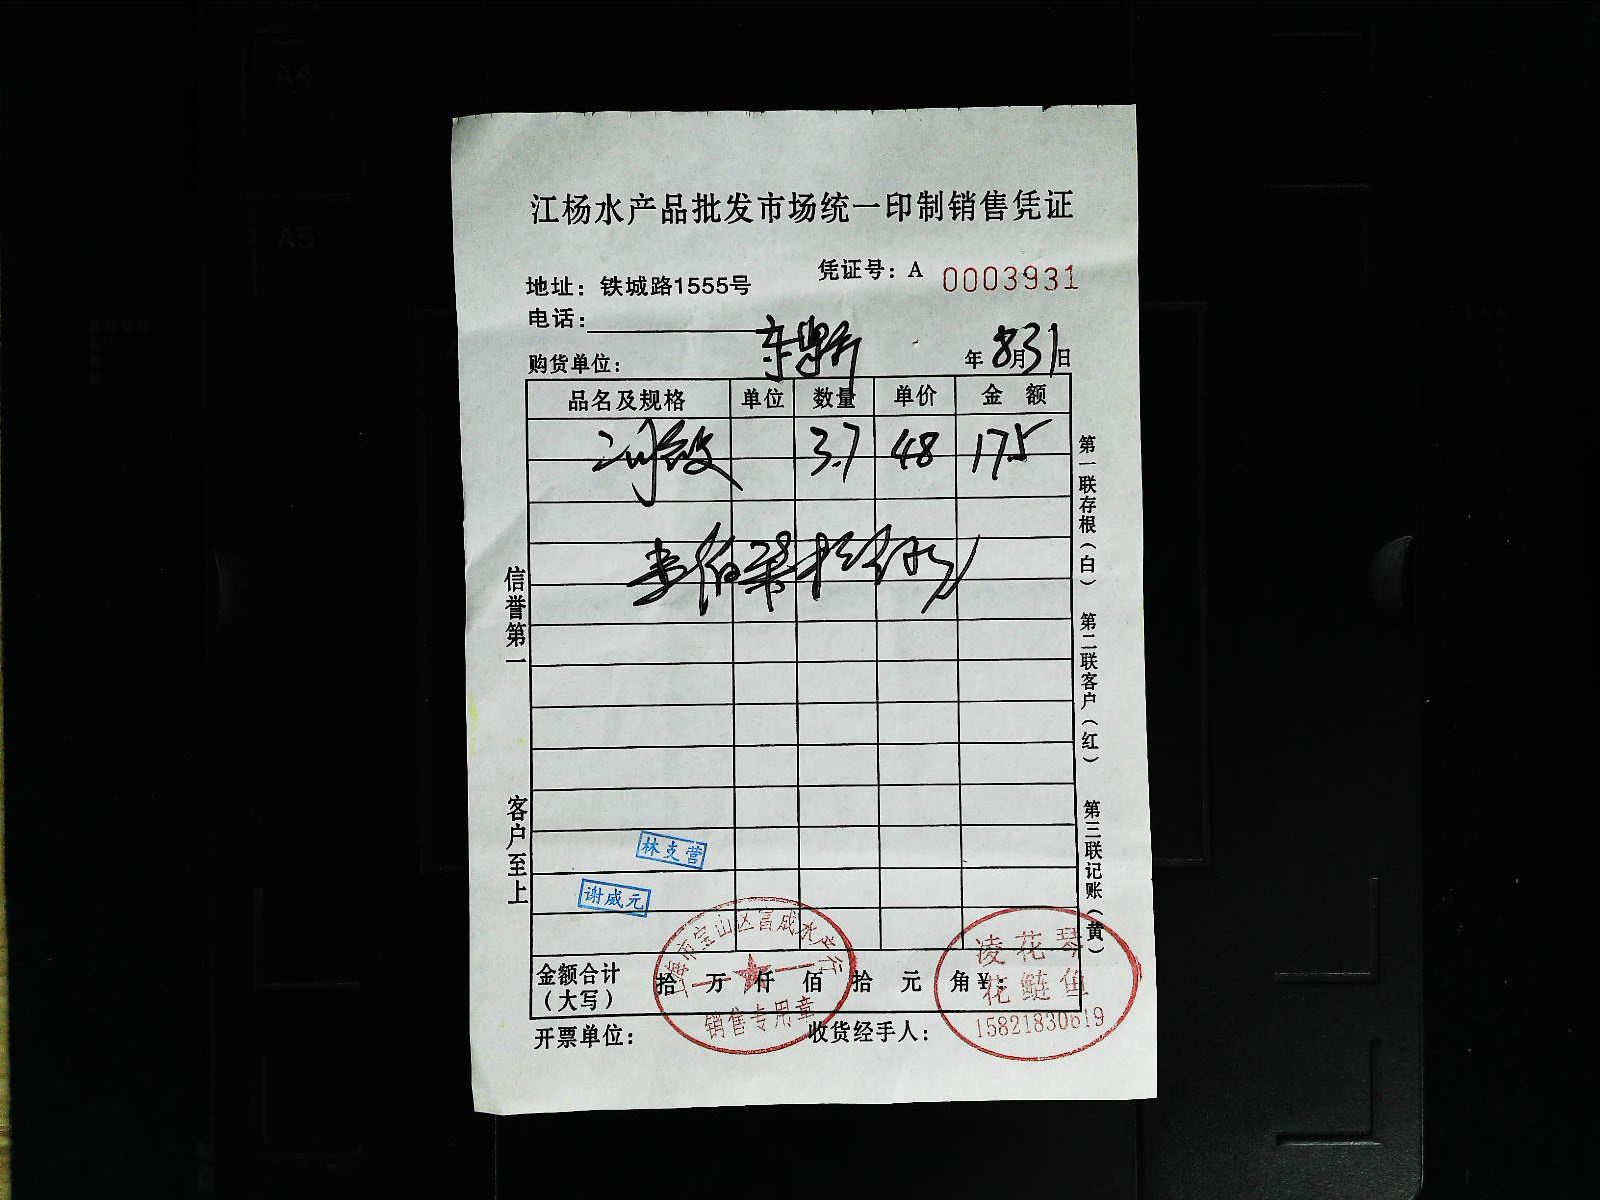 江杨水产品批发市场统一印制销售凭证
凭证号：A 0003931
地址：铁城路1555号
电话：
购货单位： 年 8月31日
品名及规格 单位 数量 单价 金 额
3.7 48 175
壹佰柒拾伍元
信誉第一
客户至上
第一联存根（白）
第二联客户（红）
第三联记账（黄）
林支营
谢威元
上海市宝山区富成水产行
销售专用章
凌花琴
花鲢鱼
15821830619
金额合计 拾 万 仟 佰 拾 元 角 ¥：
（大写）
开票单位： 收货经手人：